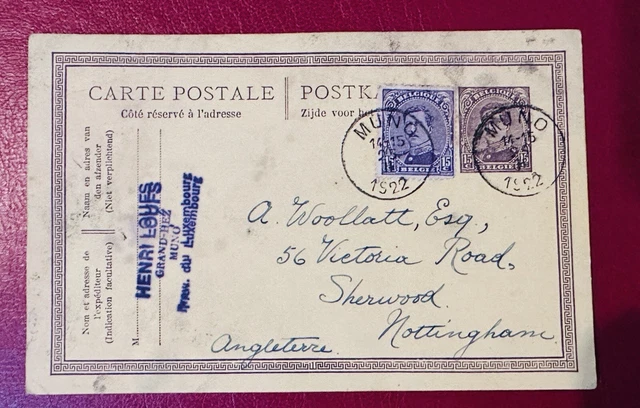 CARTE POSTALE
Côté réservé à l'adresse
POSTKA
Zijde voor he
BELGIQUE
15 15
BELGIË
BELGIQUE
15 15
MUNO
14-15
1922
MUNO
14-15
1922
Naam en adres van
den afzender
(Niet verplichtend)
Nom et adresse de
l'expéditeur
(Indication facultative)
M
HENRI LOUFS
GRAND-HEZ
MUNO
Prov. du Luxembourg
A. Woollatt, Esq.,
56 Victoria Road,
Sherwood.
Nottingham.
Angleterre.